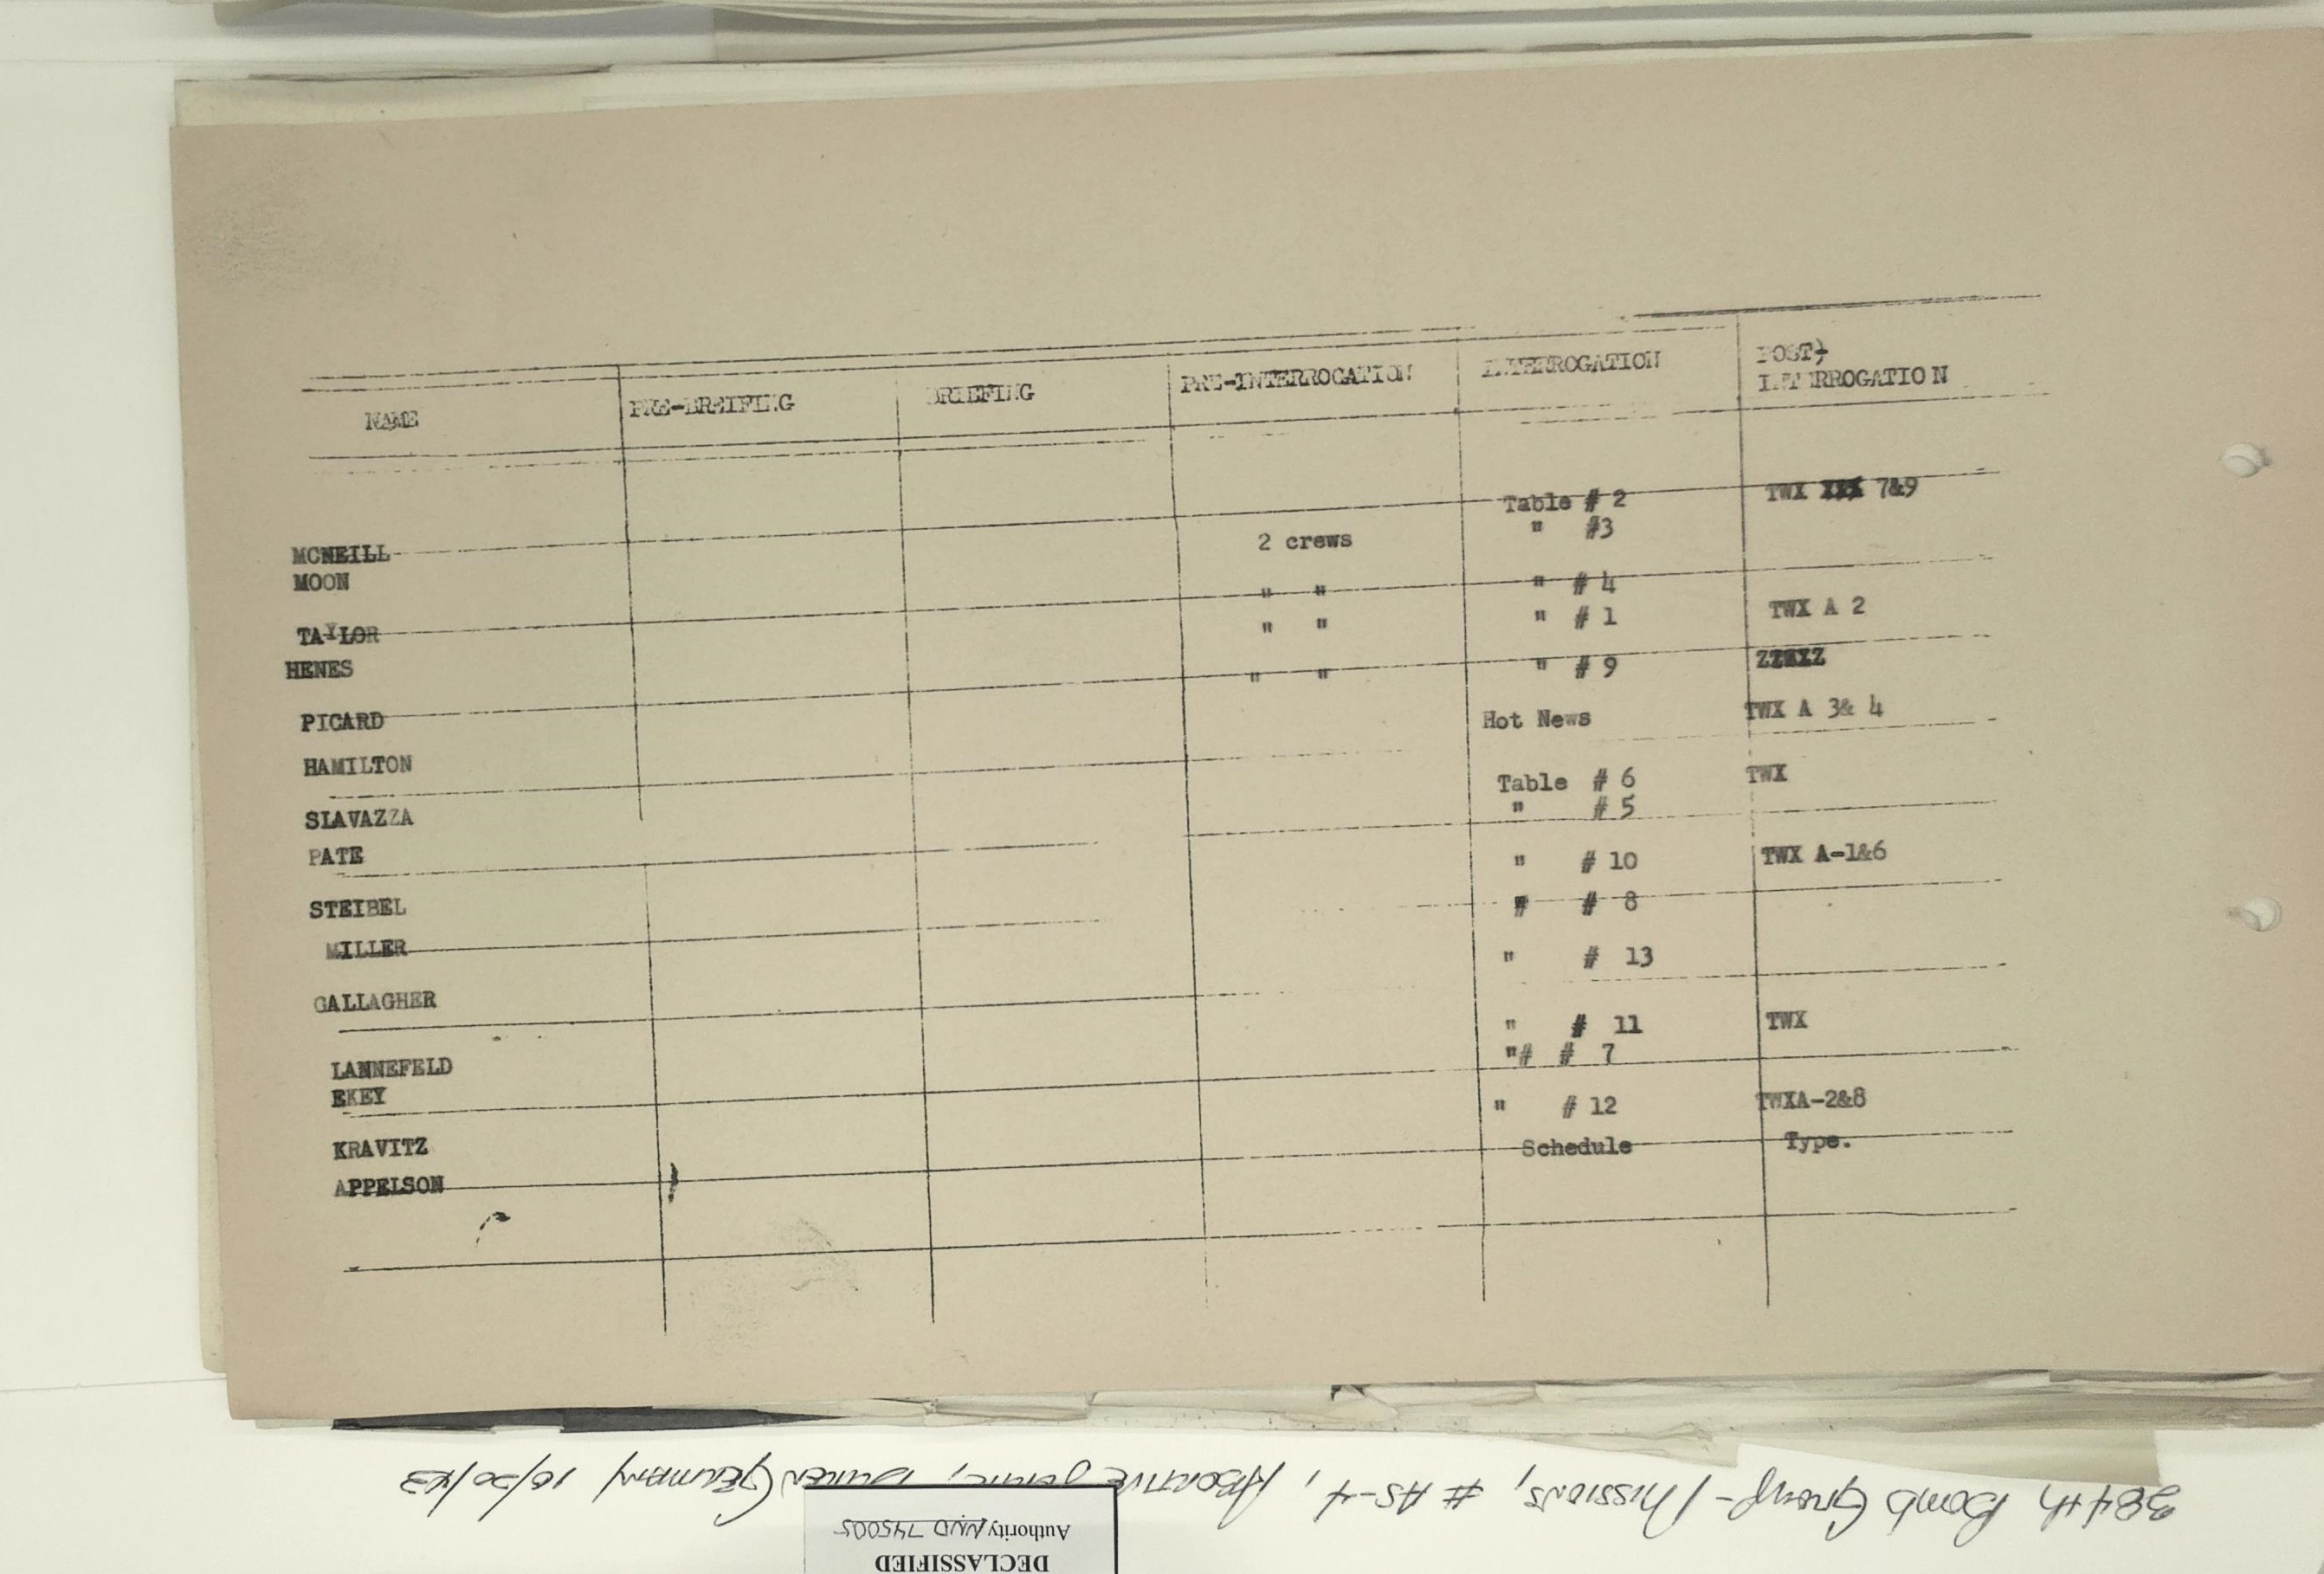 NAME PRE-BREIFING BRIEFING PRE-INTERROGATION INTERROGATION POST)
INTERROGATION
MCNEILL 2 crews Table # 2 TWX 7&9
MOON " #3
TAYLOR " " " # 4
HENES " " " # 1 TWX A 2
PICARD " " " # 9
HAMILTON Hot News TWX A 3& 4
SLAVAZZA Table # 6 TWX
PATE " # 5
STEIBEL " # 10 TWX A-1&6
MILLER " # 8
GALLAGHER " # 13
LANNEFELD " # 11 TWX
EKEY "# # 7
KRAVITZ " # 12 TWXA-2&8
APPELSON Schedule Type.
384th Bomb Group - Missions, # AS-4, Abortive Sortie, Duren Germany 10/20/43
Authority NND 745005
DECLASSIFIED